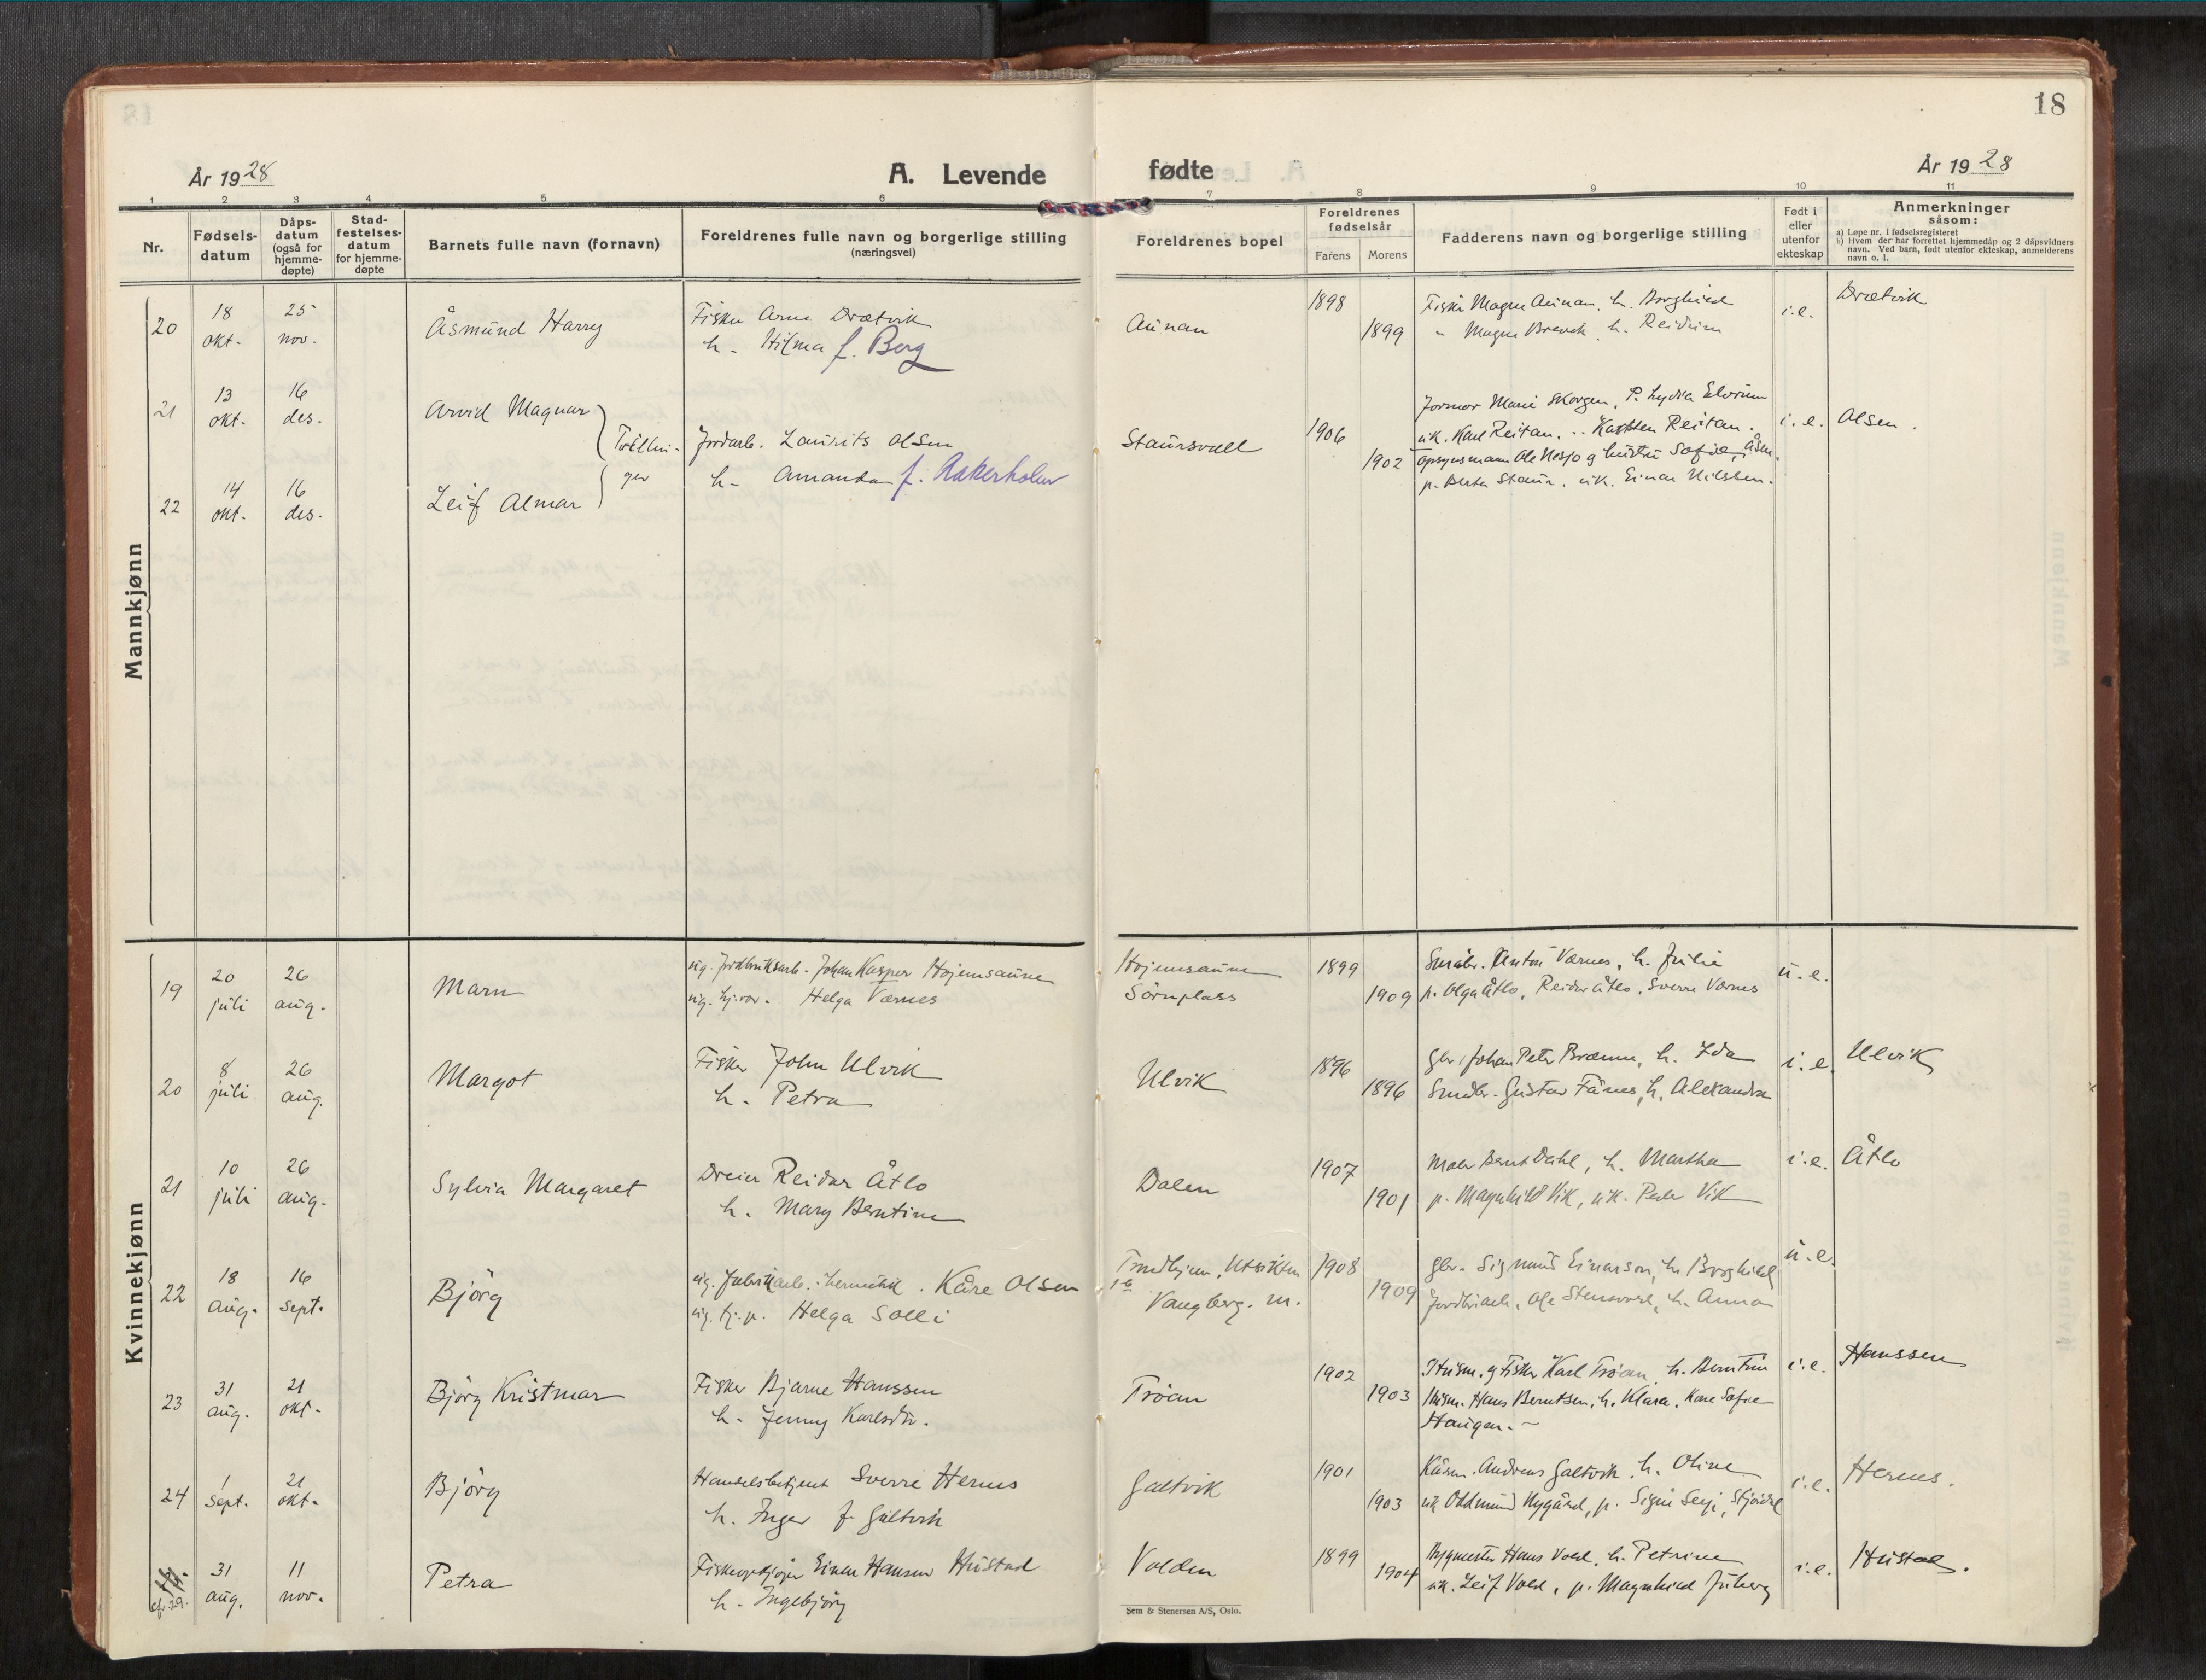 18
År 1928
A. Levende fødte
År 1928
1 2 3 4 5 6 7 8 9 10 11
Nr.
Fødsels-
datum
Dåps-
datum
(også for
hjemme-
døpte)
Stad-
festelses-
datum
for hjemme-
døpte
Barnets fulle navn (fornavn)
Foreldrenes fulle navn og borgerlige stilling
(næringsvei)
Foreldrenes bopel
Foreldrenes
fødselsår
Farens Morens
Fadderens navn og borgerlige stilling
Født i
eller
utenfor
ekteskap
Anmerkninger
såsom:
a) Løpe nr. i fødselsregisteret
b) Hvem der har forrettet hjemmedåp og 2 dåpsvidners
navn. Ved barn, født utenfor ekteskap, anmelderens
navn o. l.
Mannkjønn
20
18
okt.
25
nov.
Åsmund Harry
Fisker Arne Drætvik
h. Hilma f. Berg
Aunan
1898
1899
Fisker Magne Aunan, h. Borghild
" Magne Brevik, h. Reidun
i.e.
Drætvik
21
13
okt.
16
des.
Arvid Magnar
Tvillin-
ger
Jordarb. Laurits Olsen
h. Amanda f. Aakerholm
Staursvall
1906
1902
Formor Marie Skorgen, P. Lydia Elvrum
uk. Karl Reitan, .. Karsten Reitan.
Opsynsmann Ole Nesjø g hustru Sofie, Åsen.
p. Berta Staur, uk. Einar Nilssen.
i.e.
Olsen.
22
14
okt.
16
des.
Leif Almar
Kvinnekjønn
19
20
juli
26
aug.
Marn
ug. Jordbruksarb. Johan Kasper Højemsaune
ug. Helga Værnes
Højemsaune
Sørnplass
1899
1909
Småbr. Anton Værnes, h. Julie
p. Olga Åtlo, Reidar Åtlo, Sverre Værnes
u.e.
20
8
juli
26
aug.
Margot
Fisker John Ulvik
h. Petra
Ulvik
1896
1896
Gbr. Johan Peter Bræmn, h. Ida
Småbr. Gustav Fånes, h. Alexandra
i.e.
Ulvik
21
10
juli
26
aug.
Sylvia Margaret
Dreier Reidar Åtlo
h. Mary Berntine
Dalen
1907
1901
Maler Bernt Dahl, h. Martha
p. Magnhild Vik, uk. Peder Vik
i.e.
Åtlo
22
18
aug.
16
sept.
Bjørg
ug. Fabrikarb. Kåre Olsen
ug. tj.p. Helga Solli
Trondhjem, Utsikten
Vangberg. m.
1908
1909
gbr. Sigmund Einarson, h. Borghild
Jordbrarb. Ole Stensvard, h. Anna
u.e.
23
31
aug.
21
okt.
Bjørg Kristmar
Fisker Bjarne Hanssen
h. Jenny Karlsdtr.
Trøan
1902
1903
Husm. g Fisker Karl Trøan, h. Berntine
Husm. Hans Berntsen, h. Klara, Kone Sofie
Haugan.
i.e.
Hanssen
24
1
sept.
21
okt.
Bjørg
Handelsbetjent Sverre Hernes
h. Inger f. Galtvik
Galtvik
1901
1903
Kåsm. Andreas Galtvik, h. Oline
uk. Oddmund Nygård, p. Signe
i.e.
Hernes.
31
aug.
11
nov.
Petra
Fiskeopkjøper Einar Hansen Hustad
h. Ingebjørg
Volden
1899
1904
Bygmester Hans Vold, h. Petrine
uk. Leif Vold, p. Magnhild Juberg
i.e.
Hustad.
Sem & Stenersen A/S, Oslo.